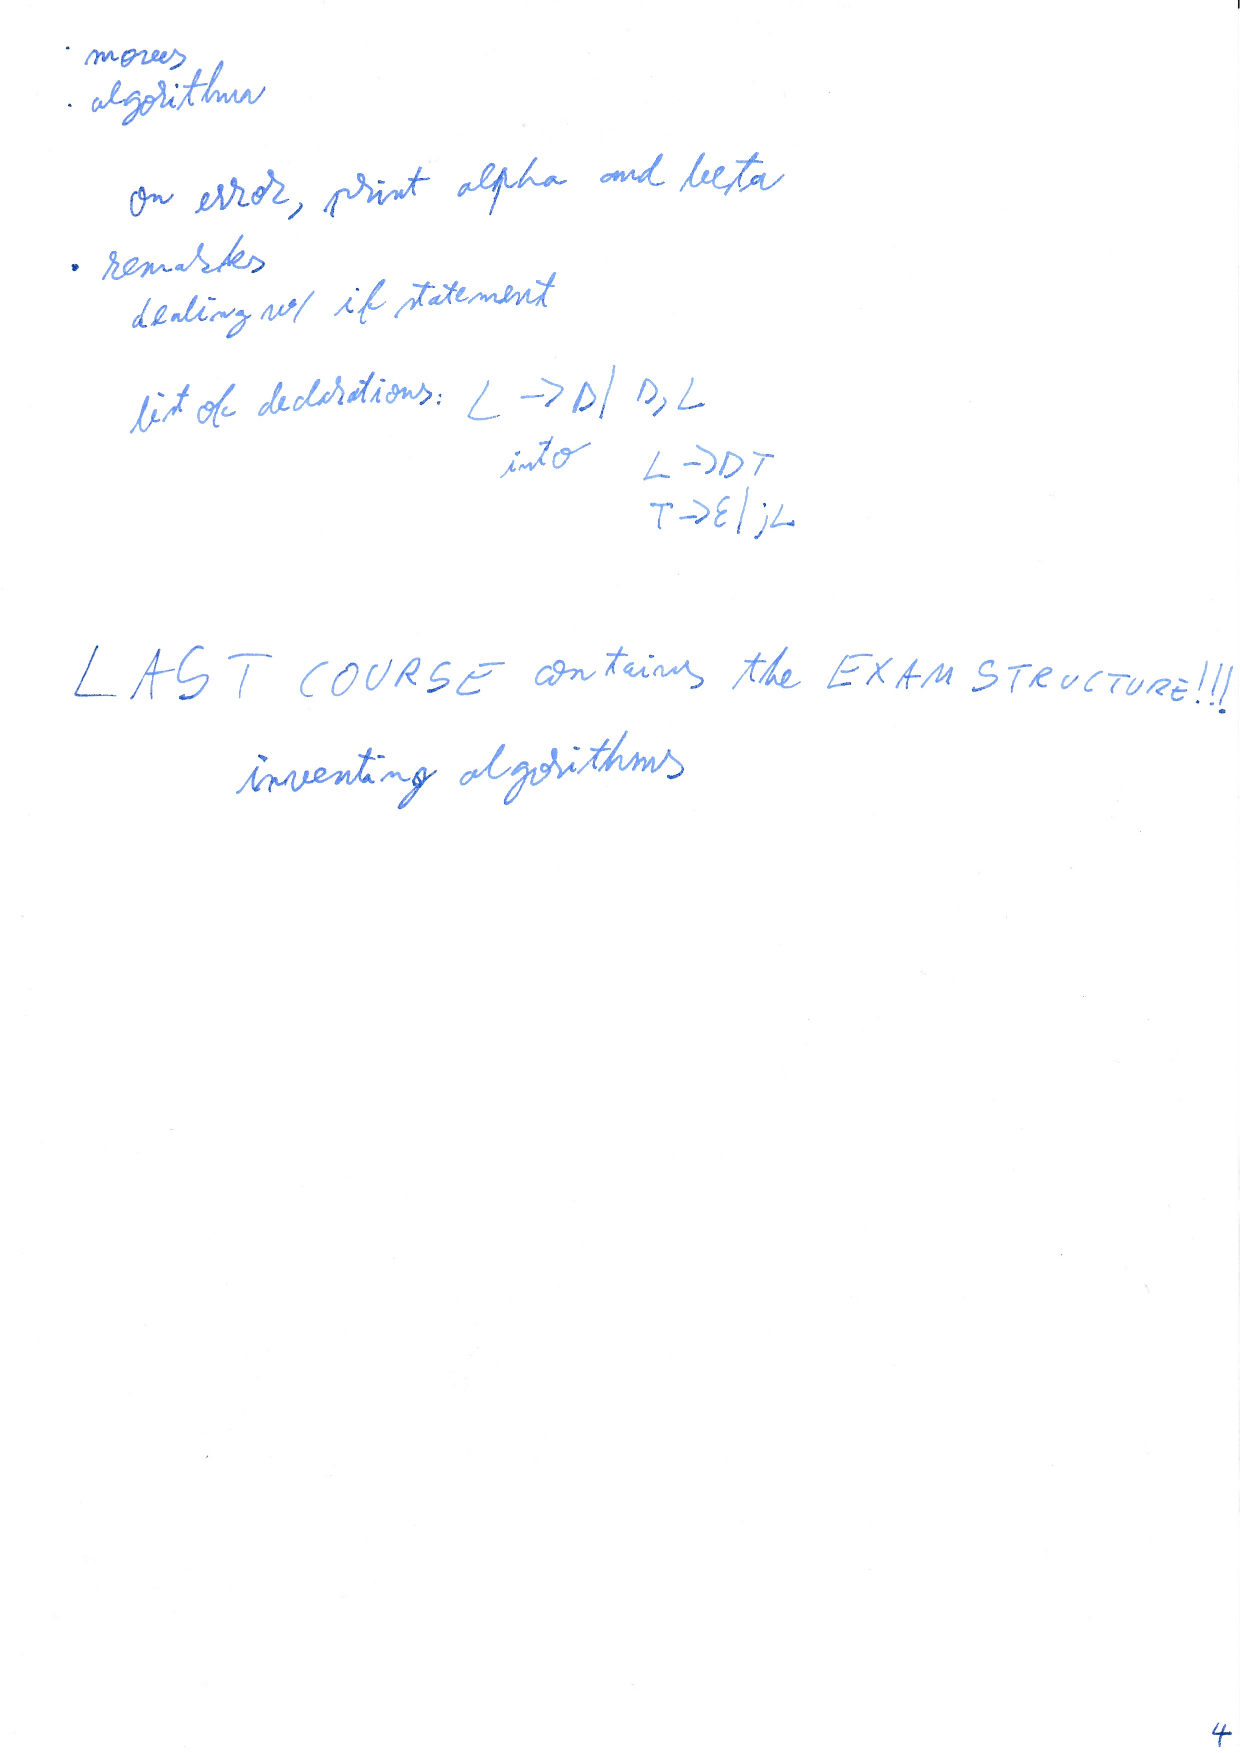 · moves
· algorithm
on error, print alpha and beta
· remarks
dealing w/ if statement
list of declarations: L -> D | D, L
into L -> DT
T -> ε | ;L
LAST COURSE contains the EXAM STRUCTURE!!!
inventing algorithms
4